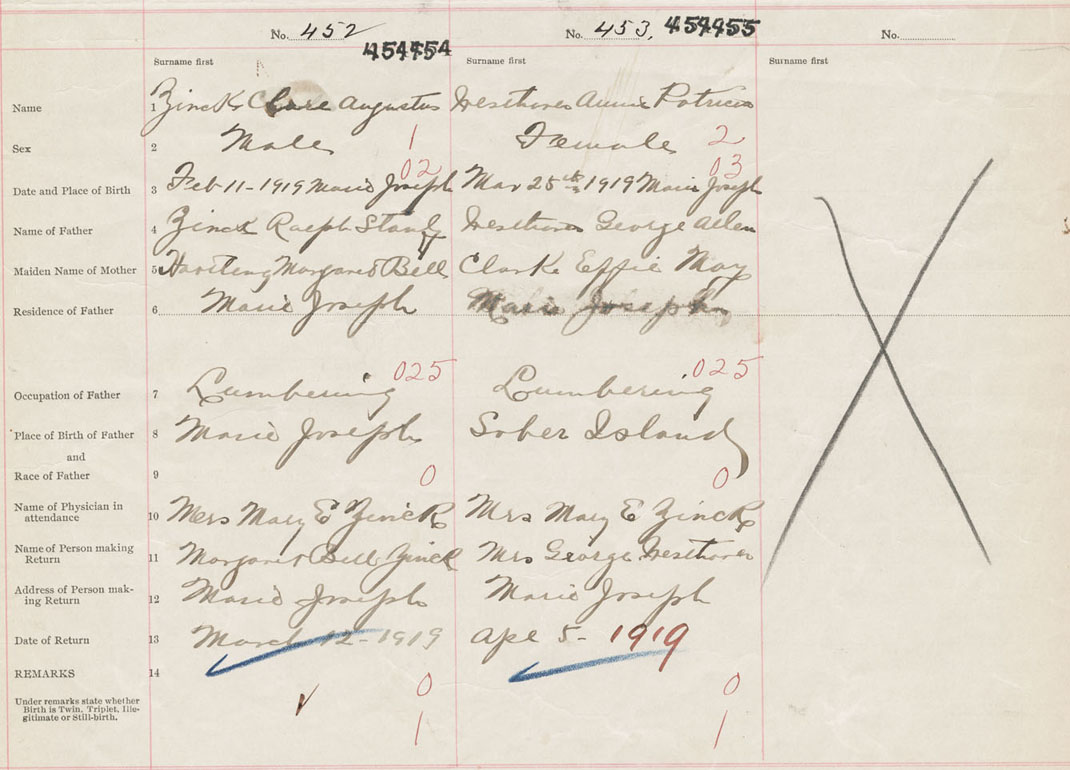 No. 452 No. 453. No.
454454 454455
Surname first Surname first Surname first
Name 1 Zinck Augustus Westhaver Annie Patricia
Sex 2 Male 1 Female 2
02 03
Date and Place of Birth 3 Feb 11-1919 Marie Joseph Mar 25th 1919 Marie Joseph
Name of Father 4 Zinck Ralph Westhaver George Allen
Maiden Name of Mother 5 Hartling Margaret Bell Clarke Effie May
Residence of Father 6 Marie Joseph Marie Joseph
025 025
Occupation of Father 7 Lumbering Lumbering
Place of Birth of Father 8 Marie Joseph Sober Island
and
Race of Father 9 0 0
Name of Physician in
attendance 10 Mrs Mary E Zinck Mrs Mary E Zinck
Name of Person making
Return 11 Margaret Bell Zinck Mrs George Westhaver
Address of Person mak-
ing Return 12 Marie Joseph Marie Joseph
Date of Return 13 March 12-1919 Apl 5-1919
REMARKS 14 0 0
Under remarks state whether
Birth is Twin. Triplet, Ille-
gitimate or Still-birth. 1 1